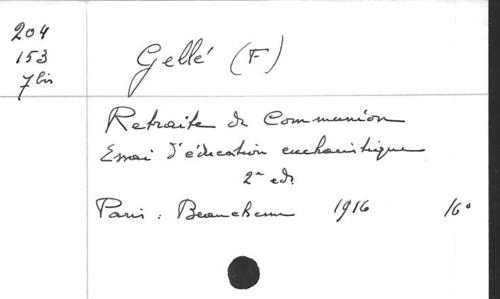 204
153
7bis
Gellé (F)
Retraite de Communion
Essai d'éducation eucharistique
2e ed.
Paris : Beauchesne 1916 16°